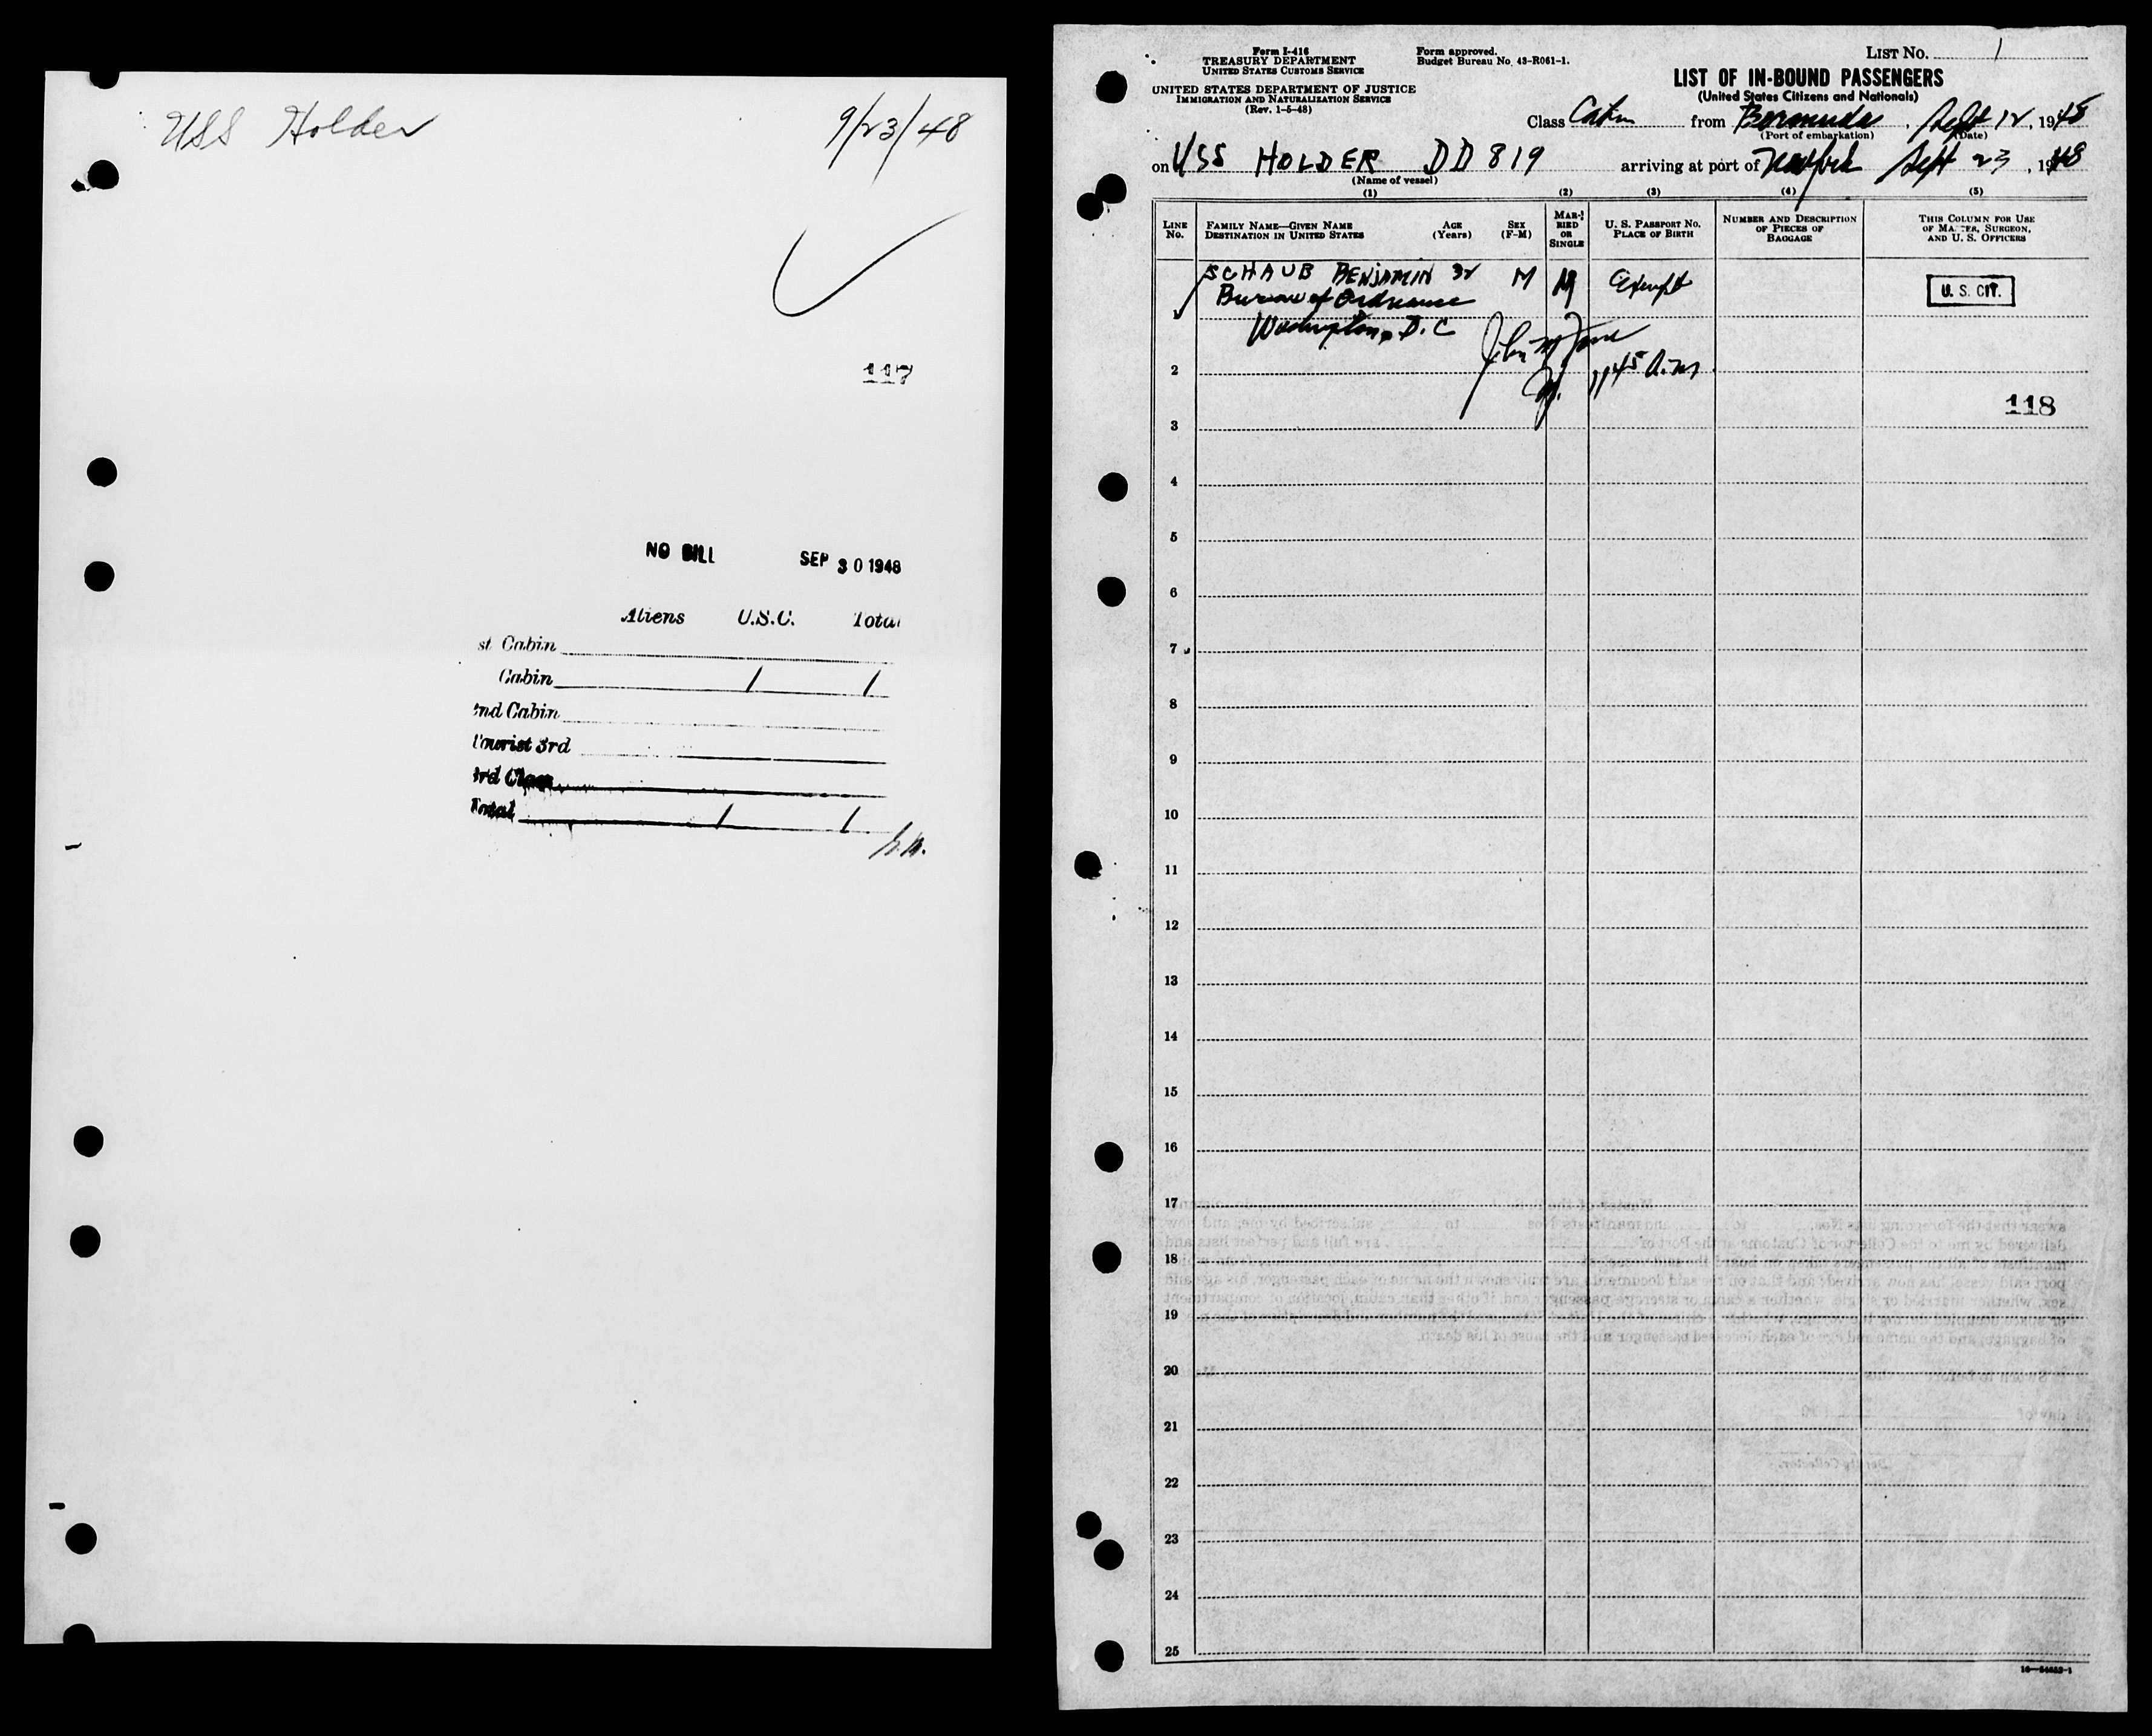 USS Holder 9/23/48
117
NO BILL SEP 30 1948
Aliens U.S.C. Total
st Cabin
Cabin / /
2nd Cabin
Tourist 3rd
3rd Class
Total / /
Form I-416
TREASURY DEPARTMENT
UNITED STATES CUSTOMS SERVICE
Form approved.
Budget Bureau No. 43-R061-1.
LIST NO. 1
UNITED STATES DEPARTMENT OF JUSTICE
IMMIGRATION AND NATURALIZATION SERVICE
(Rev. 1-5-48)
LIST OF IN-BOUND PASSENGERS
(United States Citizens and Nationals)
Class Cabin from Bermuda, Sept 12, 1948
(Port of embarkation) (Date)
on USS HOLDER DD 819 arriving at port of Sept 23, 1948
(Name of vessel)
(1) (2) (3) (4) (5)
LINE No.
FAMILY NAME—GIVEN NAME
DESTINATION IN UNITED STATES
AGE
(Years)
SEX
(F-M)
MARRIED OR SINGLE
U. S. PASSPORT NO.
PLACE OF BIRTH
NUMBER AND DESCRIPTION
OF PIECES OF
BAGGAGE
THIS COLUMN FOR USE
OF MASTER, SURGEON,
AND U. S. OFFICERS
SCHAUB BENJAMIN 32 M M Exempt U. S. CIT.
Bureau of Ordnance
1
Washington, D.C
2
1145 A.M.
118
3
4
5
6
7
8
9
10
11
12
13
14
15
16
17
18
19
20
21
22
23
24
25